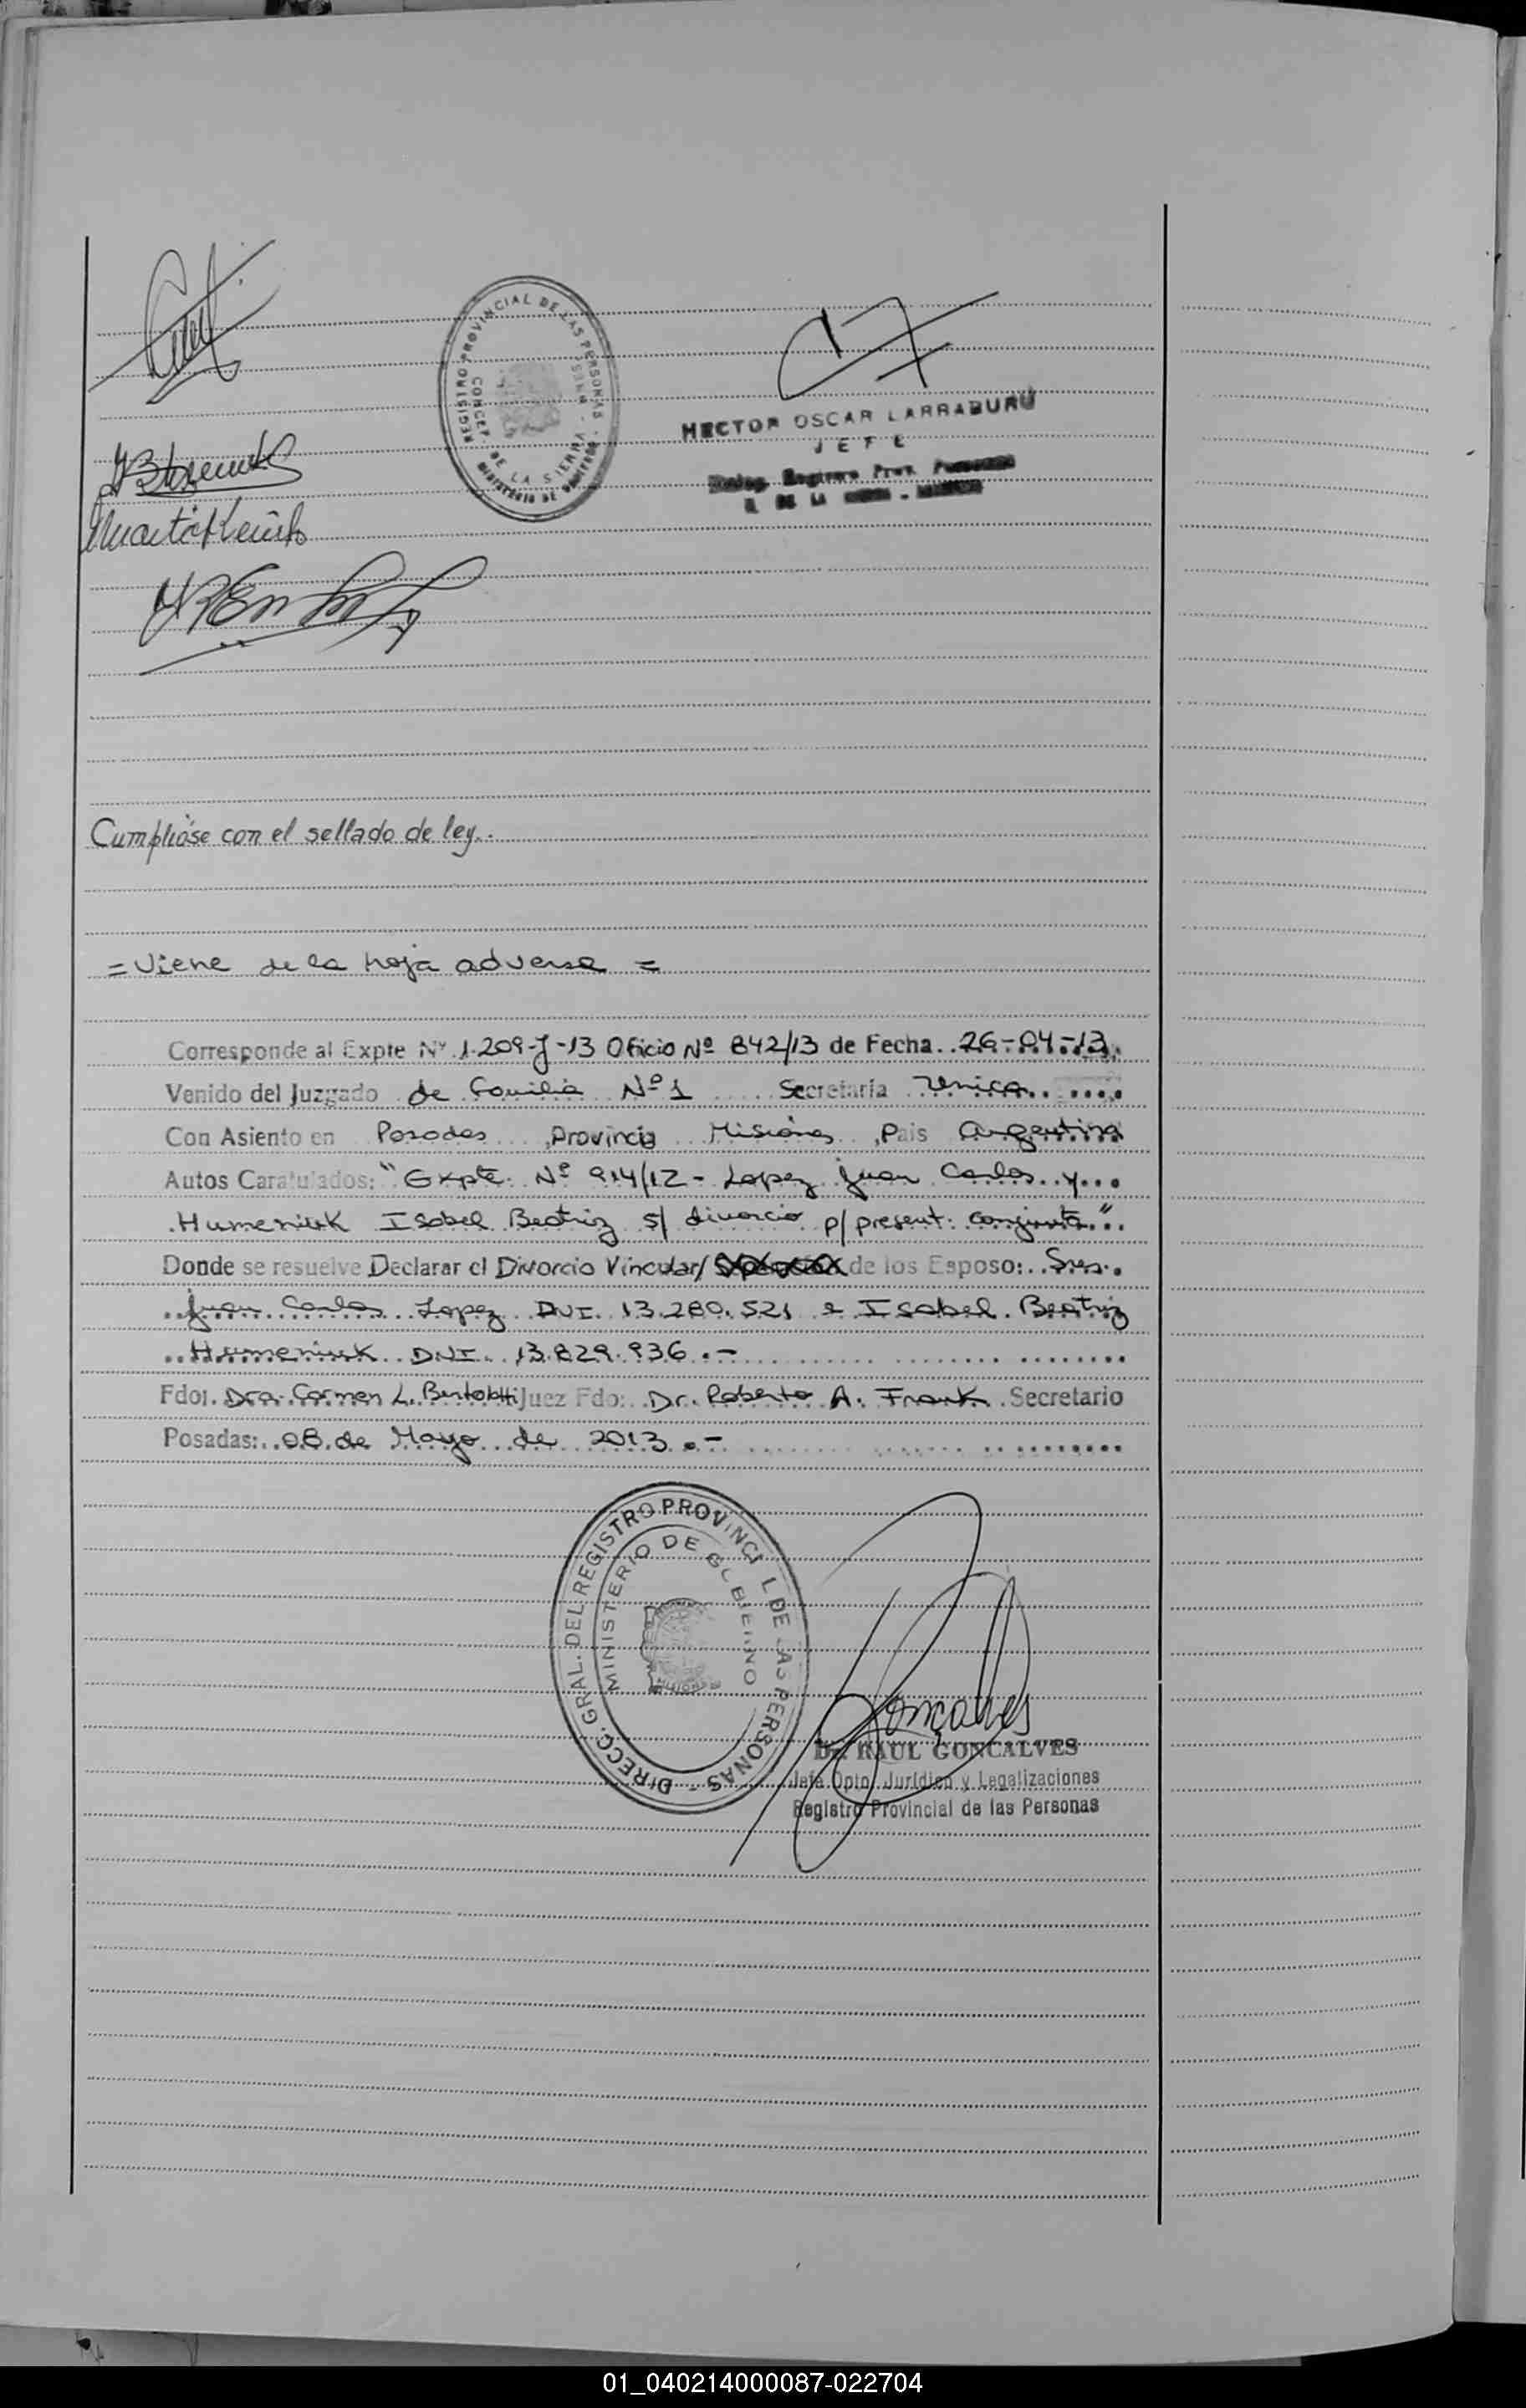 REGISTRO PROVINCIAL DE LAS PERSONAS
CONCEP. DE LA SIERRA
MINISTERIO DE
HECTOR OSCAR LARRABURÚ
JEFE
DE LA
Cumplióse con el sellado de ley.
= Viene de la hoja adversa =
Corresponde al Expte Nº 1.209-J-13 Oficio Nº 842/13 de Fecha 26-04-13.
Venido del Juzgado de Familia Nº 1 Secretaría Unica
Con Asiento en Posadas, Provincia Misiones, Pais Argentina
Autos Caratulados: "Expte. Nº 914/12 - Lopez Juan Carlos y
Humeniuk Isabel Beatriz s/ divorcio p/ present. conjunta".
Donde se resuelve Declarar el Divorcio Vincular/ de los Esposo: Sres.
Juan Carlos Lopez DNI. 13.280.521 e Isabel Beatriz
Humeniuk DNI. 13.829.936.-
Fdo. Dra. Carmen L. Bertolotti Juez Fdo: Dr. Roberto A. Frank Secretario
Posadas: 08 de Mayo de 2013.-
DIRECC. GRAL. DEL REGISTRO PROVINCI L DE LAS PERSONAS -
MINISTERIO DE GOBIERNO
Goncalves
Dr. RAUL GONCALVES
Jefe Dpto. Jurídico y Legalizaciones
Registro Provincial de las Personas
01_040214000087-022704